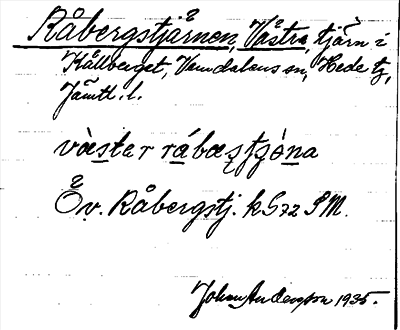 Råbergstjärnen, Västra, tjärn i
Kållberget, Vemdalens sn, Hede tg,
Jämtl. l.
vàster rábæstjæ̀na
Öv. Råbergstj. k G 72 SM.
Johan Andersson 1935.